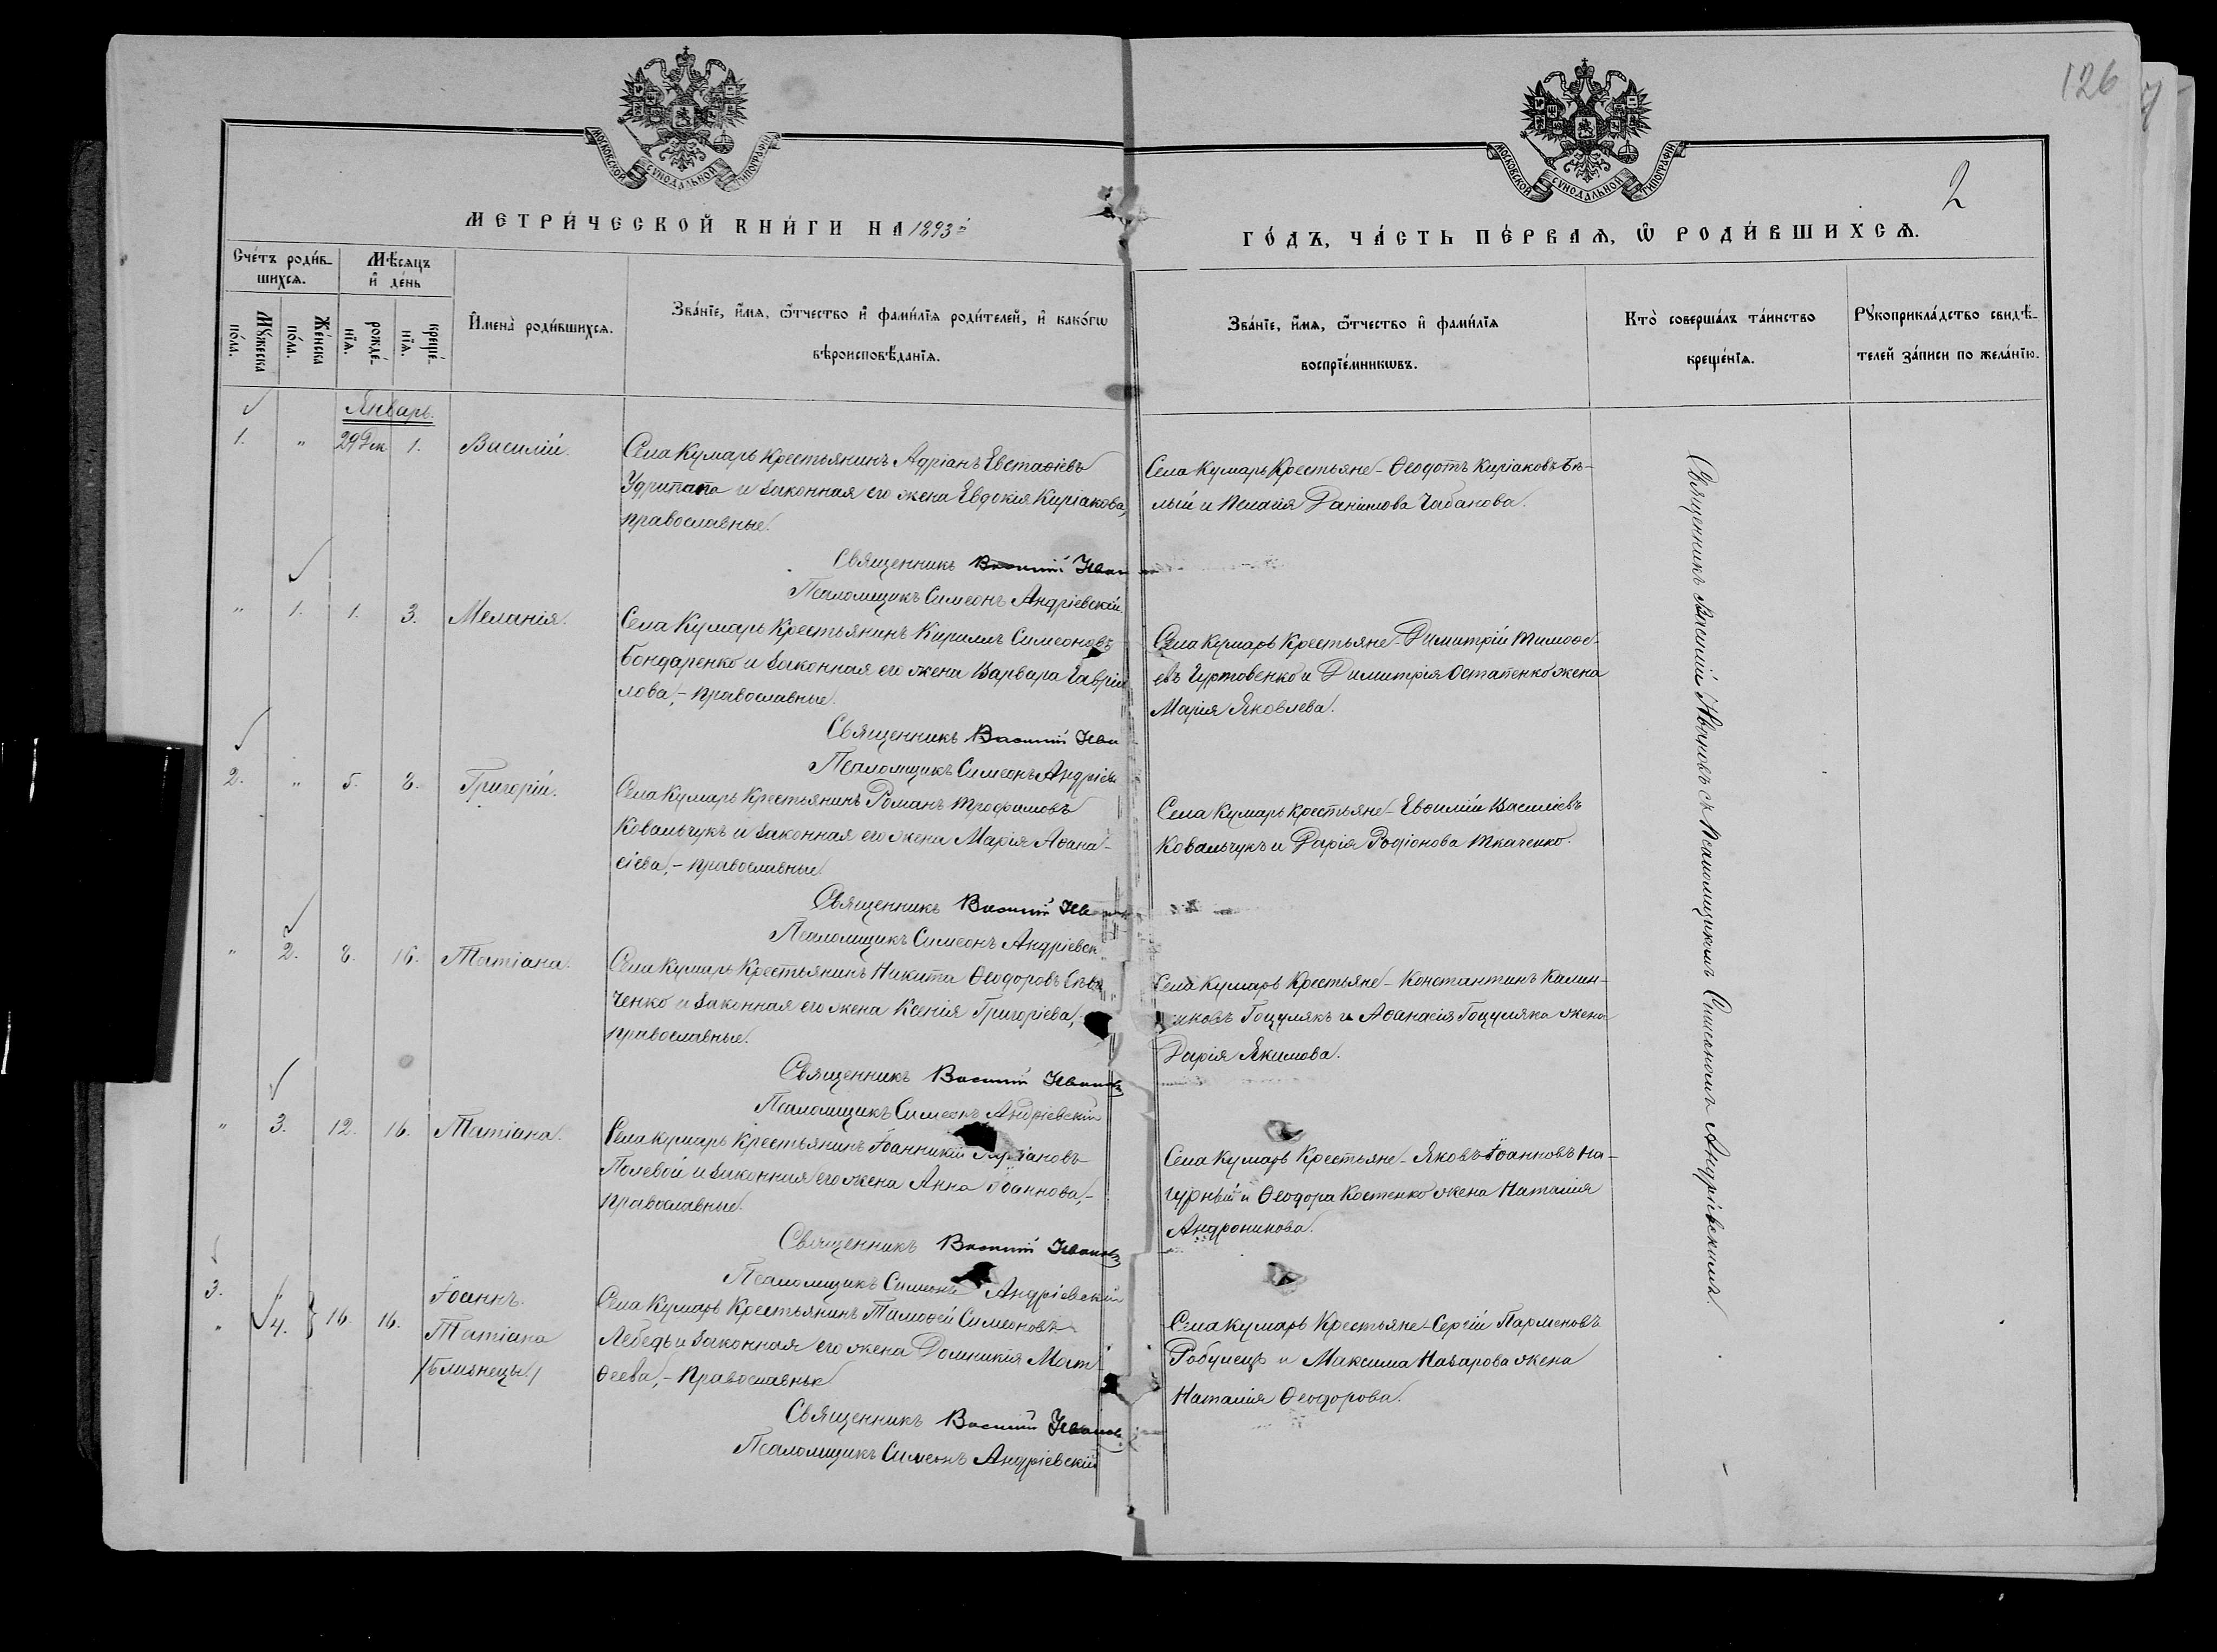 126
2
МОСКОВСКОЙ СѴНОДАЛЬНОЙ ТИПОГРАФІИ
МОСКОВСКОЙ СѴНОДАЛЬНОЙ ТИПОГРАФІИ
МЕТРИ́ЧЕСКОЙ КНИ́ГИ НА 1893й
ГО́ДЪ, ЧА́СТЬ ПЕ́РВАѦ, Ѡ҆ РОДИ́ВШИХСѦ.
Сче́тъ роди́в-
шихсѧ.
Мѣ́сяцъ
и҆ де́нь
Мꙋ́жеска
по́ла.
Же́нска
по́ла.
рожде́-
нїѧ.
креще́-
нїѧ.
И҆мена̀ роди́вшихсѧ.
Зва́нїе, и҆́мѧ, ѻ҆́тчество и҆ фами́лїѧ роди́телей, и҆ како́гѡ
вѣроисповѣ́данїѧ.
Зва́нїе, и҆́мѧ, ѻ҆́тчество и҆ фами́лїѧ
воспрїе́мникѡвъ.
Кто̀ соверша́лъ та́инство
креще́нїѧ.
Рꙋкоприкла́дство свидѣ́-
телей за́писи по жела́нїю.
Январь.
1. " 29 Дек 1. Василій.
Села Кумарь Крестьянинъ Адріанъ Евстаѳіевъ
и законная его жена Евдокія Киріакова,
православные.
Священникъ Василій Иван
Псаломщикъ Симеонъ Андріевскій.
Села Кумарь Крестьяне - Ѳеодотъ Киріаковъ Бѣ-
лый и Пелагія Данілова Чабанова.
" 1. 1. 3. Меланія.
Села Кумарь Крестьянинъ Кириллъ Симеоновъ
Бондаренко и законная его жена Варвара Гавріи
лова, - православные.
Священникъ Василій Ива
Псаломщикъ Симеонъ Андріев
Села Кумарь Крестьяне - Димитрій Тимоѳе-
евъ Гуртовенко и Димитрія Остапенко жена
Марія Яковлева.
2. " 5. 8. Григорій.
Села Кумарь Крестьянинъ Романъ Трофимовъ
Ковальчукъ и законная его жена Марія Аѳана-
сіева, - православные.
Священникъ Василій Ив
Псаломщикъ Симеонъ Андріевск
Села Кумарь Крестьяне - Евѳимій Василіевъ
Ковальчукъ и Дарія Родіонова Ткаченко.
" 2. 8. 16. Татіана.
Села Кумарь Крестьянинъ Никита Ѳеодоровъ
ченко и законная его жена Ксенія Григоріева,
православные.
Священникъ Василій Ивановъ
Псаломщикъ Симеонъ Андріевскій
Села Кумарь Крестьяне - Константинъ Калин-
иковъ Гоцулякъ и Аѳанасія Гоцуляка жена
Дарія Якимова.
" 3. 12. 16. Татіана.
Села Кумарь Крестьянинъ Іоанникій
Полевой и законная его жена Анна Іоаннова, -
православные.
Священникъ Василій Ивановъ
Псаломщикъ Симеонъ Андріевскій
Села Кумарь Крестьяне - Яковъ Іоанновъ На-
гурный и Ѳеодора Костенко жена Наталія
Андроникова.
3. " 16. 16. Іоаннъ.
" 4. Татіана
/близнецы/
Села Кумарь Крестьянинъ Тимоѳей Симеоновъ
Лебедь и законная его жена Домникія Мат
ѳеева, - православные
Священникъ Василій Иванов
Псаломщикъ Симеонъ Андріевскій
Села Кумарь Крестьяне - Сергій Парменовъ
Робулецъ и Максима Назарова жена
Наталія Ѳеодорова.
Священникъ Василій Ивановъ съ Псаломщикомъ Симеономъ Андріевскимъ.